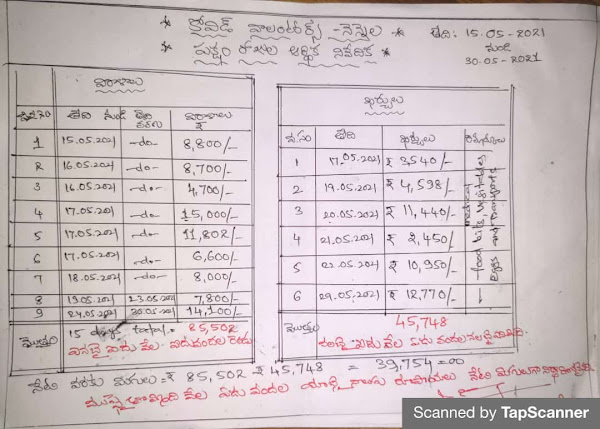 * కోవిడ్ వాలంటీర్స్ - నెన్నెల *
తేది: 15-05-2021
నుండి
30-05-2021
* పక్షం రోజుల ఆర్థిక నివేదిక *
విరాళాలు
క్ర.సం తేది నుండి తేది వరకు విరాళాలు ₹
1 15.05.2021 -do- 8,800/-
2 16.05.2021 -do- 8,700/-
3 16.05.2021 -do- 4,700/-
4 17.05.2021 -do- 15,000/-
5 17.05.2021 -do- 11,802/-
6 17.05.2021 -do- 6,600/-
7 18.05.2021 -do- 8,000/-
8 19.05.2021 23.05.2021 7,800/-
9 24.05.2021 30.05.2021 14,100/-
మొత్తం 15 days total = 85,502
ఎనభై ఐదు వేల ఐదువందల రెండు
ఖర్చులు
క్ర.సం తేది ఖర్చులు
1 17.05.2021 ₹ 3,540/-
2 19.05.2021 ₹ 4,598/-
3 20.05.2021 ₹ 11,440/-
4 21.05.2021 ₹ 2,450/-
5 22.05.2021 ₹ 10,950/-
6 29.05.2021 ₹ 12,770/-
medical
food bits, vegitables
Eggs and transports
మొత్తం 45,748
నలభై ఐదు వేల ఏడు వందల నలభై ఎనిమిది.
నేటి వరకు మిగులు = ₹ 85,502 - ₹ 45,748 = 39,754=00
ముప్పై తొమ్మిది వేల ఏడు వందల యాభై నాలుగు రూపాయలు నేటి మిగులుగా
Scanned by TapScanner